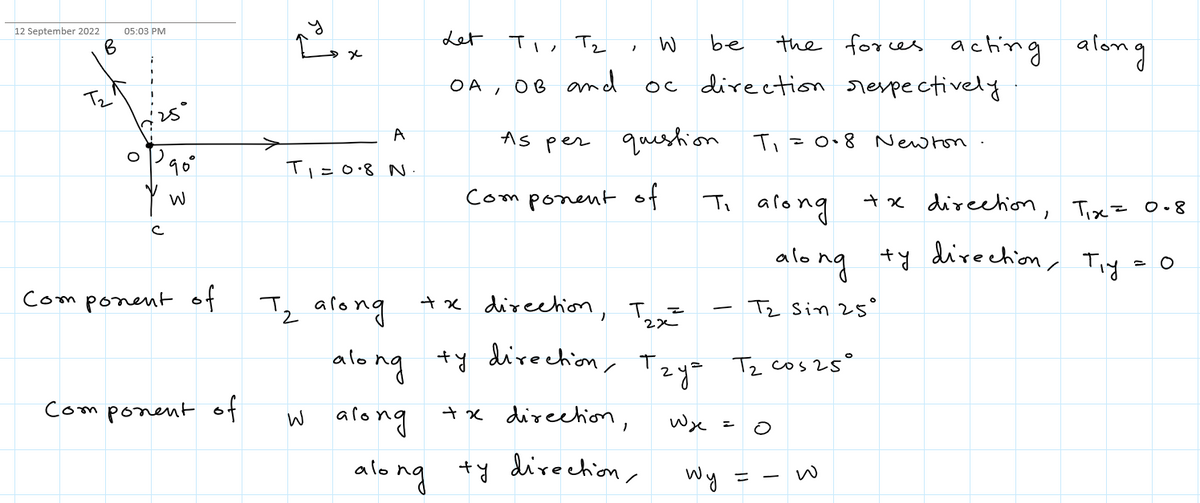 12 September 2022 05:03 PM
B
y
x
T₂
25°
O
90°
W
C
A
T₁ = 0.8 N.
Let T₁, T₂, W be the forces acting along
OA, OB and OC direction respectively.
As per question T₁ = 0.8 Newton.
Component of T₁ along +x direction, T₁x = 0.8
along +y direction, T₁y = 0
Component of T₂ along +x direction, T₂x = - T₂ sin 25°
along +y direction, T₂y = T₂ cos 25°
Component of W along +x direction, Wx = 0
along +y direction, Wy = - W